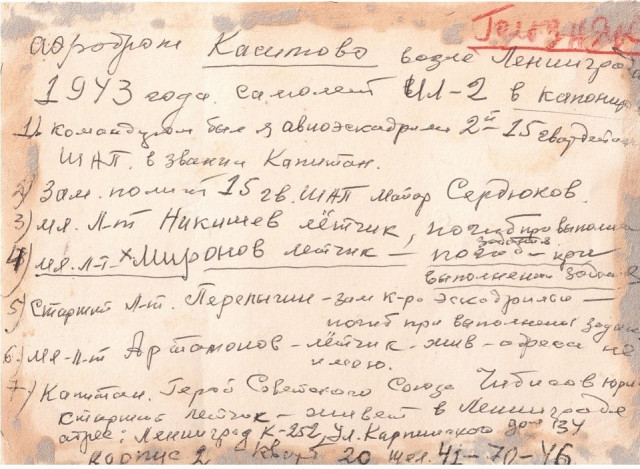 Гнюзняк
аэродром Касимово возле Ленинград
1943 года. самолет ИЛ-2 в капонир
1). командиром был я авиоэскадрилии 2й - 15 гвардейск
ШАП. в звании Капитан.
2) Зам. полит 15 гв. ШАП майор Сердюков.
3) мл. л-т Никишев лётчик, погиб при выполнен
задания
4) мл. л-т х Миронов лётчик - погиб - при
выполнении задани
5) Старший л-т. Перепычин - зам к-ра эскадрилии -
погиб при выполнении задан
6. мл-л-т Артамонов - лётчик - жив - адреса не
имею.
7) Капитан. Герой Советского Союза Чибисов Юрий
старший лётчик - живет в Ленинграде
адрес: Ленинград К-252, ул. Карпинского дом 34
корпус 2 кварт 20 тел. 41-70-46